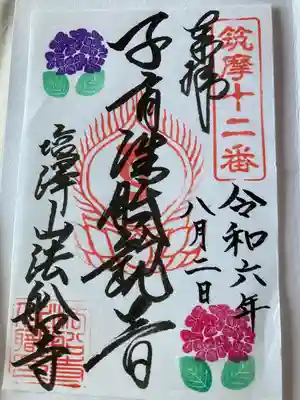 筑摩十二番
奉拝
令和六年
八月二日
子育浅㔟観音
塩澤山法船寺